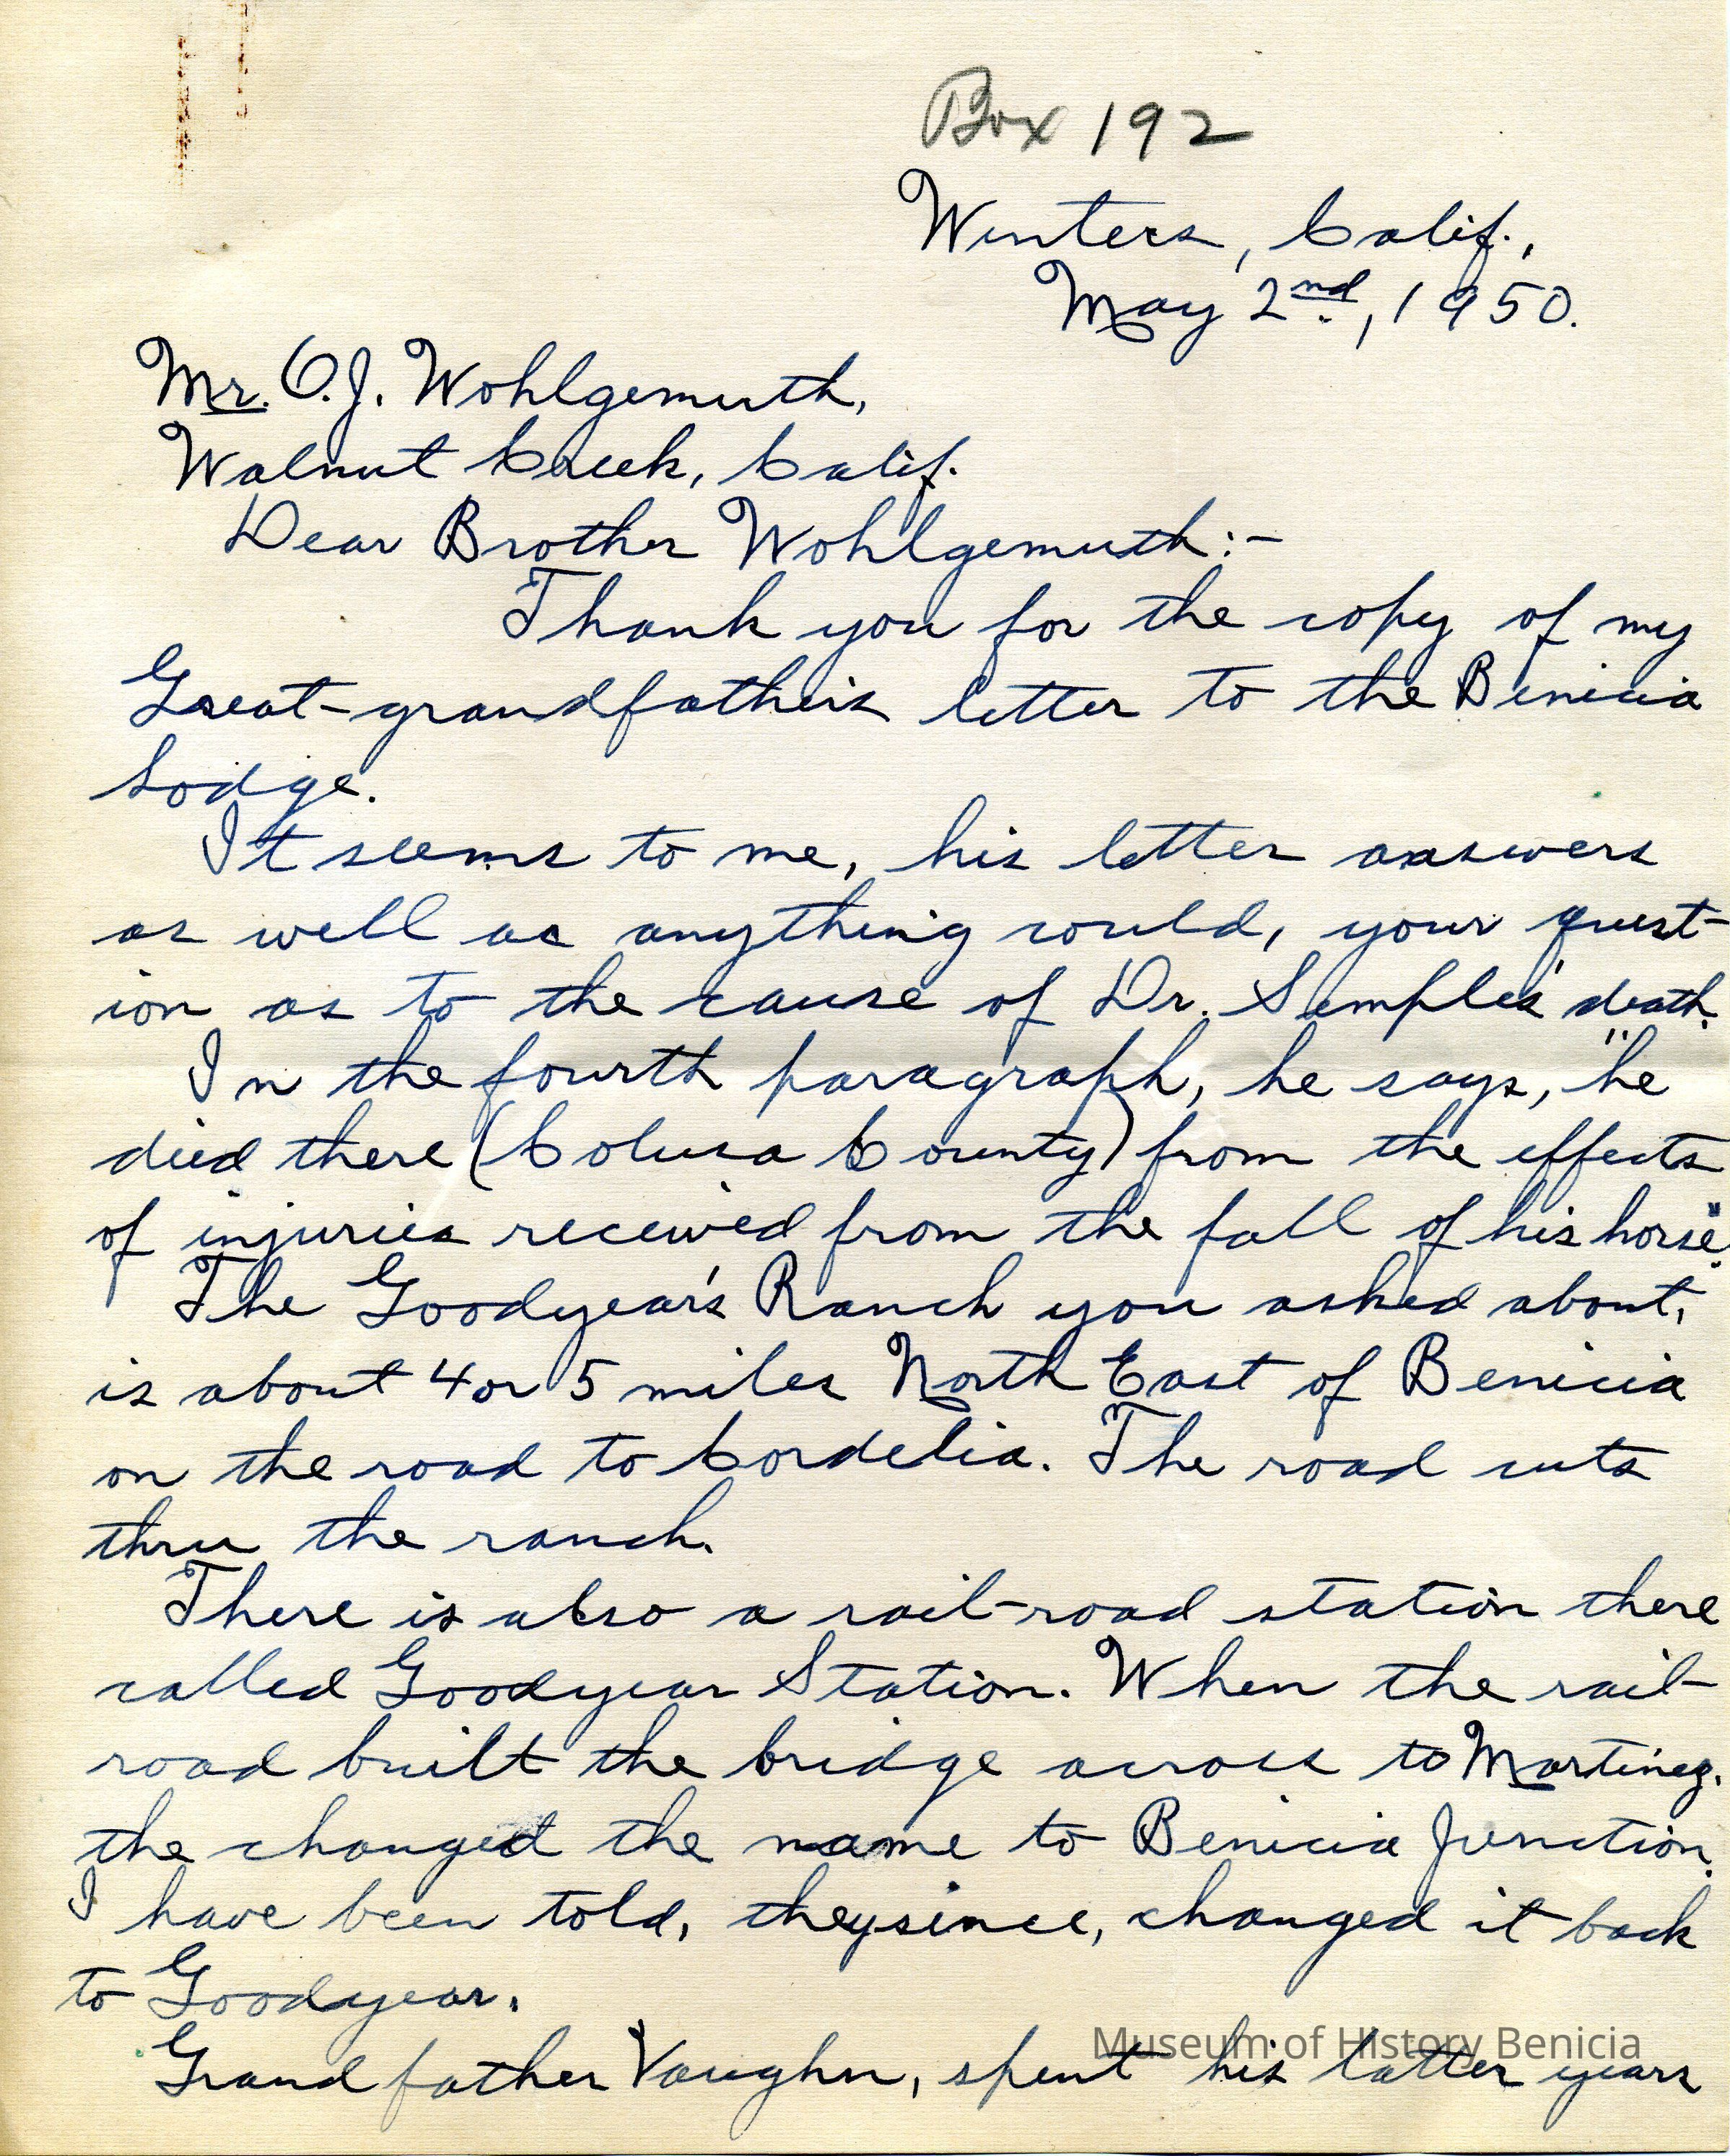 Box 192
Winters, Calif.,
May 2nd, 1950.
Mr. O.J. Wohlgemuth,
Walnut Creek, Calif.
Dear Brother Wohlgemuth:-
Thank you for the copy of my
Great-grandfather's letter to the Benicia
Lodge.
It seems to me, his letter answers
as well as anything could, your quest-
ion as to the cause of Dr. Semple's death.
In the fourth paragraph, he says, "he
died there (Colusa County) from the effects
of injuries received from the fall of his horse."
The Goodyear's Ranch you asked about,
is about 4 or 5 miles North East of Benicia
on the road to Cordelia. The road cuts
thru the ranch.
There is also a rail-road station there
called Goodyear Station. When the rail-
road built the bridge across to Martinez,
the changed the name to Benicia Junction.
I have been told, they since, changed it back
to Goodyear.
Grandfather Vaughn, spent his latter years
Museum of History Benicia